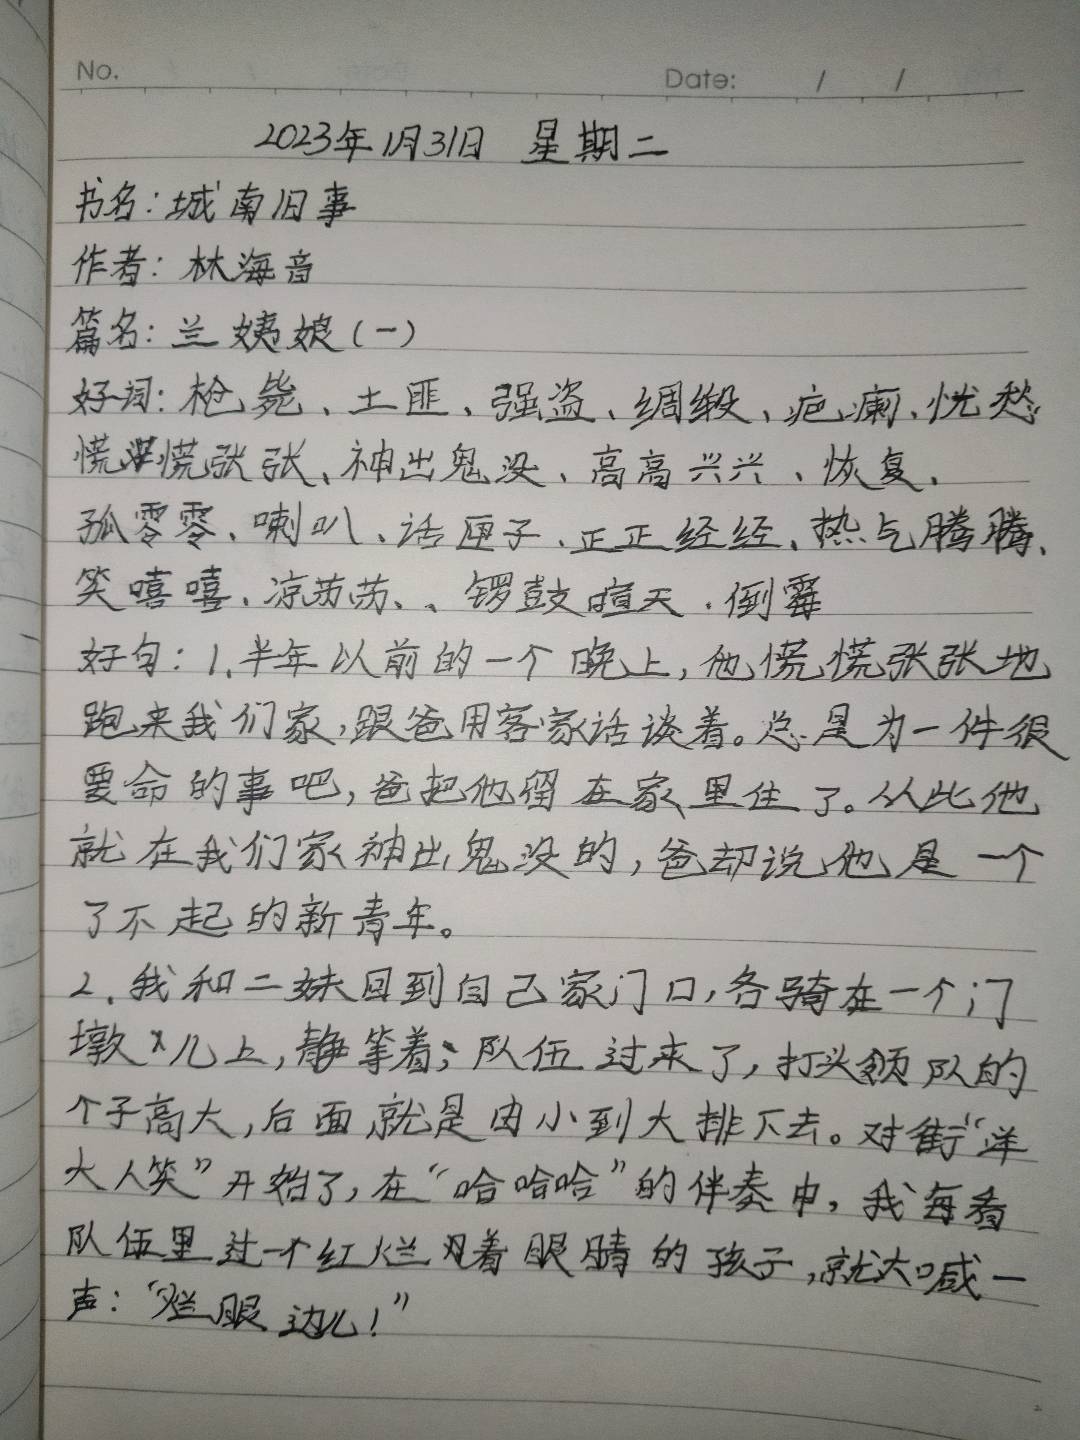 No.
Date: / /
2023年1月31日 星期二
书名:城南旧事
作者:林海音
篇名:兰姨娘(一)
好词:枪毙、土匪、强盗、绸缎、疤瘌、忧愁
慌慌张张、神出鬼没、高高兴兴、恢复、
孤零零、喇叭、话匣子、正正经经、热气腾腾、
笑嘻嘻、凉苏苏、、锣鼓喧天、倒霉
好句:1.半年以前的一个晚上,他慌慌张张地
跑来我们家,跟爸用客家话谈着。总是为一件很
要命的事吧,爸把他留在家里住了。从此他
就在我们家神出鬼没的,爸却说他是一个
了不起的新青年。
2.我和二妹回到自己家门口,各骑在一个门
墩儿上,静等着;队伍过来了,打头领队的
个子高大,后面就是由小到大排下去。对街“洋
大人笑”开始了,在“哈哈哈”的伴奏中,我每看
队伍里过一个红烂着眼睛的孩子,就大喊一
声:“烂眼边儿!”